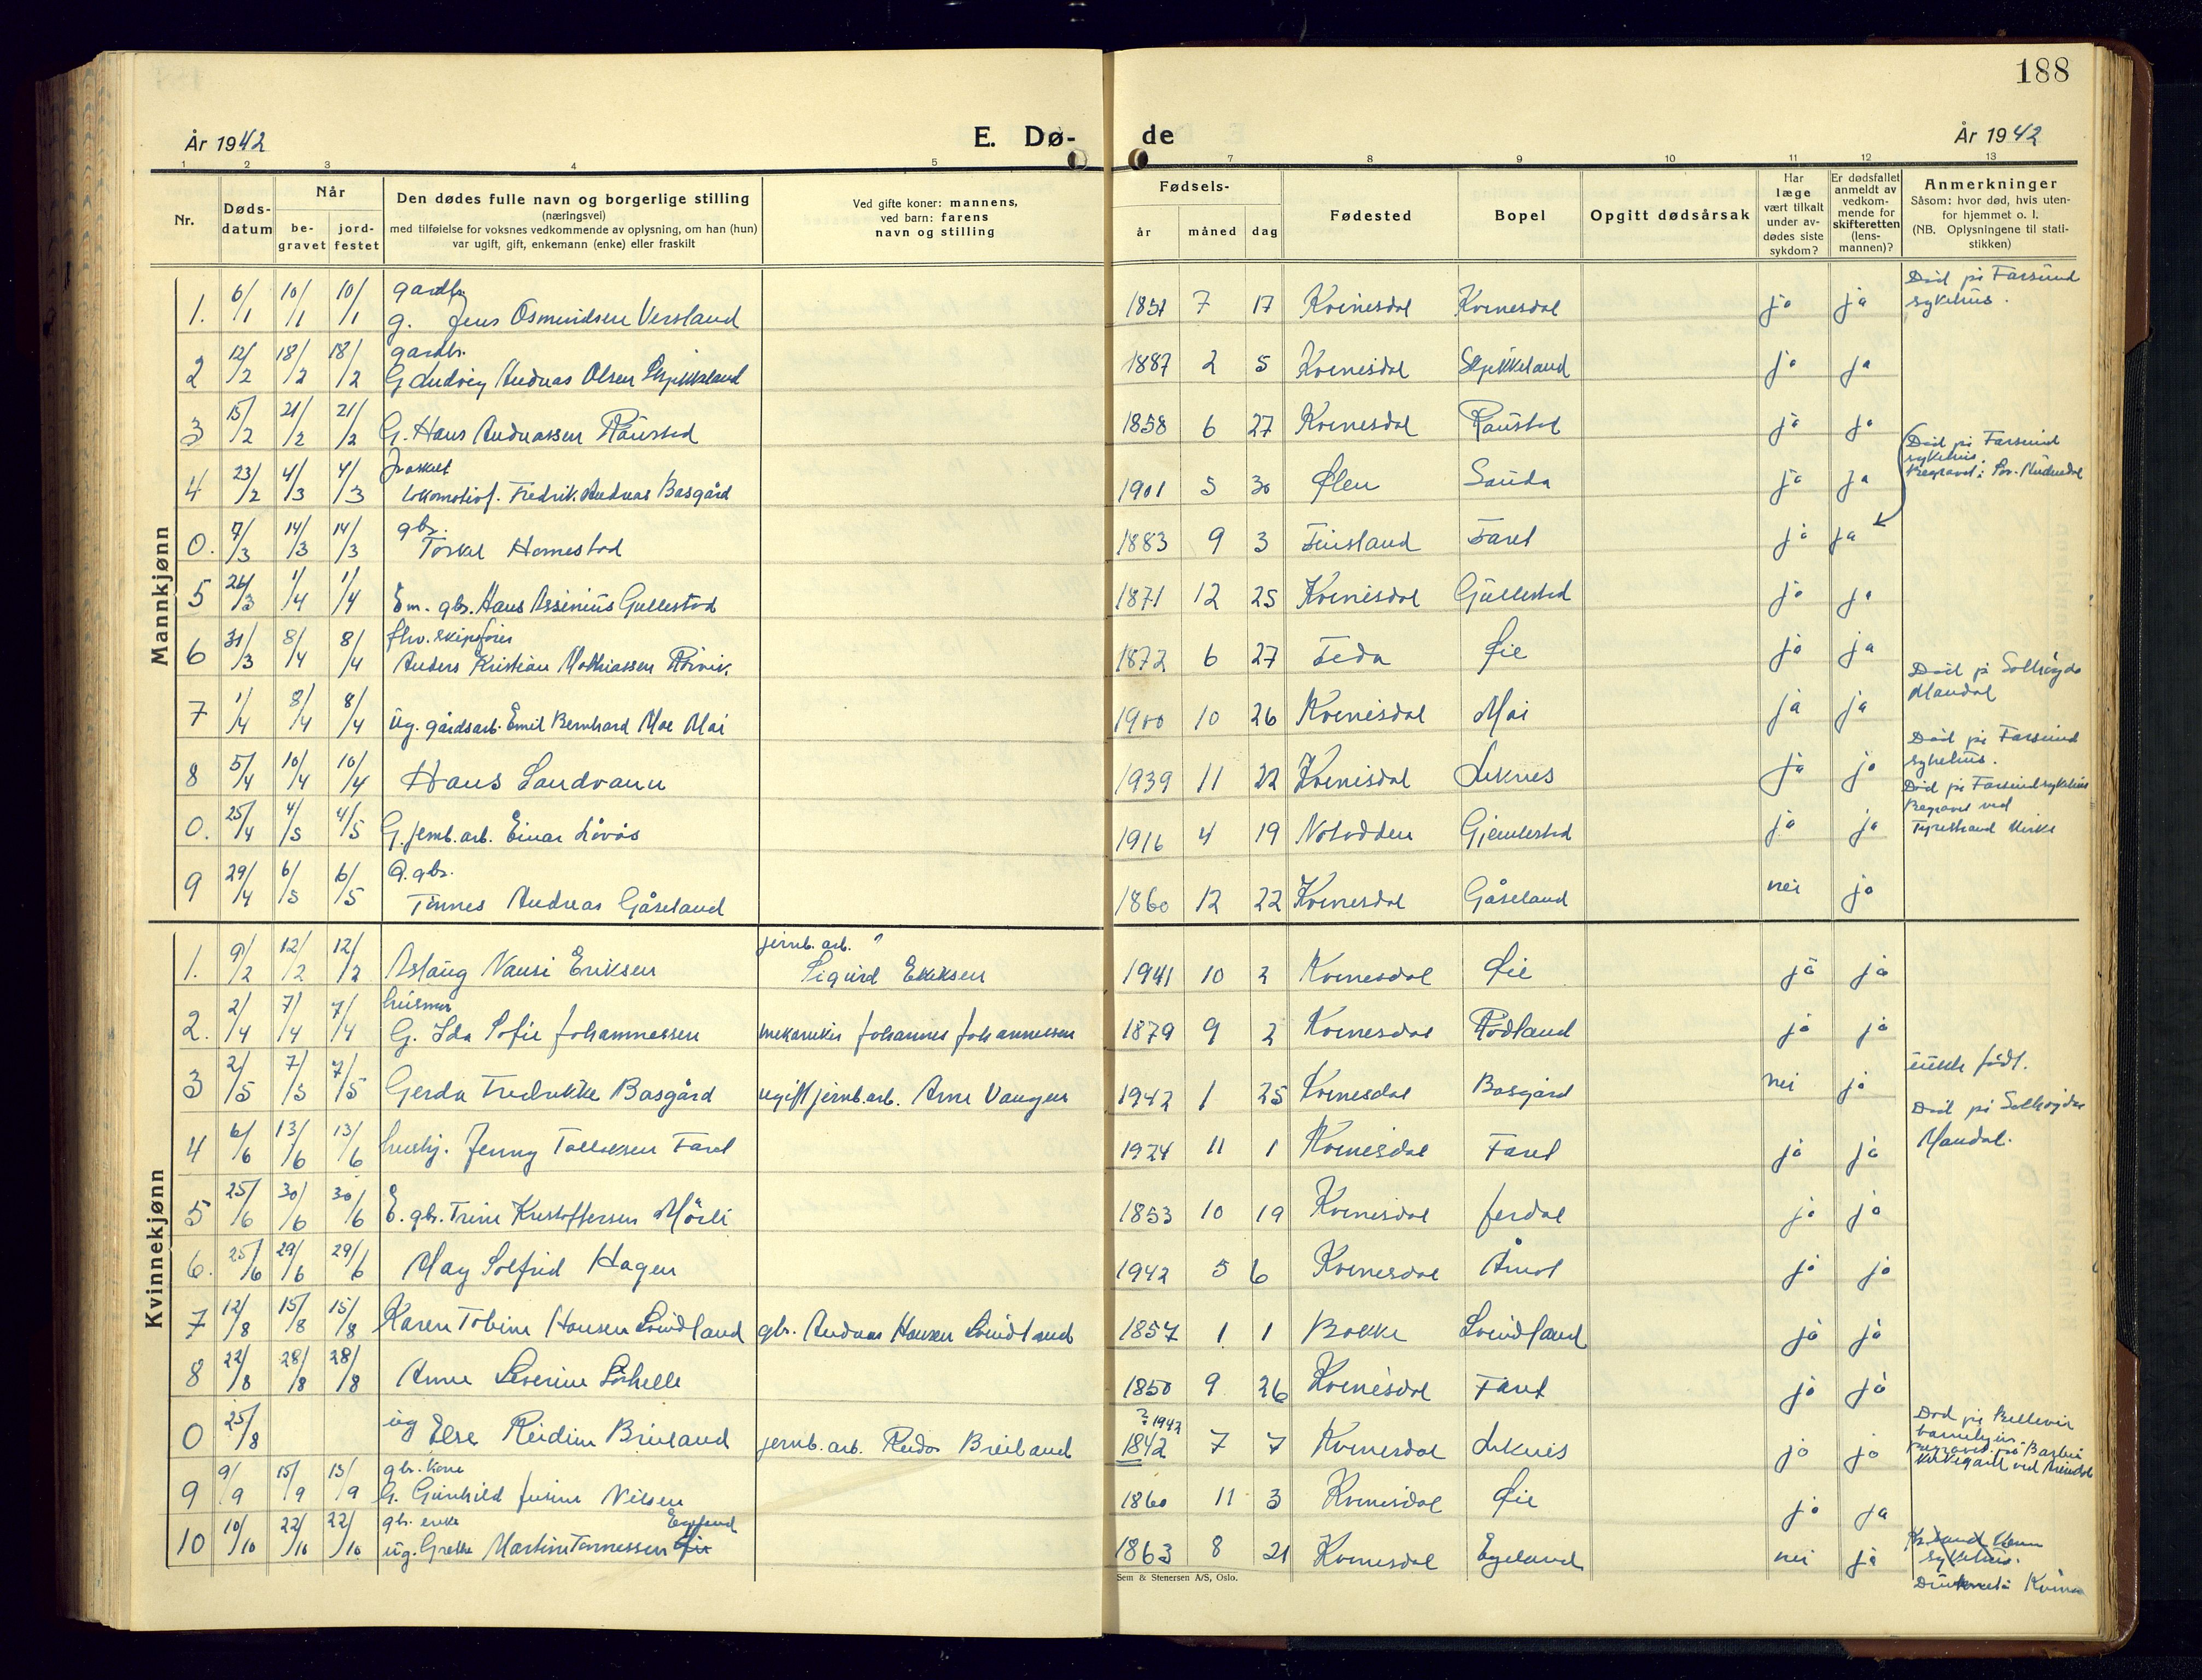 188
År 1942
E. Dø-
de
År 1942
1 2 3 4 5 7 8 9 10 11 12 13
Nr.
Døds-
datum
Når
be-
gravet
jord-
festet
Den dødes fulle navn og borgerlige stilling
(næringsvei)
med tilføielse for voksnes vedkommende av oplysning, om han (hun)
var ugift, gift, enkemann (enke) eller fraskilt
Ved gifte koner: mannens,
ved barn: farens
navn og stilling
Fødsels-
år måned dag
Fødested
Bopel
Opgitt dødsårsak
Har
læge
vært tilkalt
under av-
dødes siste
sykdom?
Er dødsfallet
anmeldt av
vedkom-
mende for
skifteretten
(lens-
mannen)?
Anmerkninger
Såsom: hvor død, hvis uten-
for hjemmet o. l.
(NB. Oplysningene til stati-
stikken)
Mannkjønn
gardbr.
1. 6/1 10/1 10/1 g. Jens Osmundsen Versland 1851 7 17 Kvinesdal Kvinesdal ja ja Død på Farsund
sykehus.
gardbr.
2 12/2 18/2 18/2 G. Ludvig Andreas Olsen 1887 2 5 Kvinesdal ja ja
3 15/2 21/2 21/2 G. Hans Andreassen Raustad 1858 6 27 Kvinesdal Raustad ja ja
fraskilt
4 23/2 4/3 4/3 Lokomotivf. Fredrik Andreas Basgård 1901 5 30 Ølen Sauda ja ja
Død på Farsund
sykehus.
Begravet i Sør-Audnedal
gbr.
0. 7/3 14/3 14/3 Torkel Homestad 1883 9 3 Finsland Faret ja ja
5 26/3 1/4 1/4 Em. gbr. Hans Assinius Gullestad 1871 12 25 Kvinesdal Gullestad ja ja
fhv. skipsfører
6 31/3 8/4 8/4 Anders Kristian Mathiassen Rørvik. 1872 6 27 Feda Øie ja ja
7 1/4 8/4 8/4 ug. gårdsarb. Emil Bernhard Moe Moi 1900 10 26 Kvinesdal Moi ja ja Død på Solhøgda
Mandal
8 5/4 10/4 10/4 Hans Sandvann 1939 11 22 Kvinesdal Liknes ja ja Død på Farsund
sykehus.
0. 25/4 4/5 4/5 G. jernb. arb. Einar Løvås 1916 4 19 Notodden Gjemlestad ja ja Død på Farsund sykehus
Begravet ved
Tyristrand kirke
gbr.
9 29/4 6/5 6/5 Tønnes Andreas Gåseland 1860 12 22 Kvinesdal Gåseland nei ja
Kvinnekjønn
jernb. arb.
1. 9/2 12/2 12/2 Aslaug Nansi Eriksen Sigurd Eriksen 1941 10 2 Kvinesdal Øie ja ja
husmor
2. 2/4 7/4 7/4 G. Ida Sofie Johannessen mekaniker Johannes Johannessen 1879 9 2 Kvinesdal Rødland ja ja
3 2/5 7/5 7/5 Gerda Fredrikke Basgård ugift jernb. arb. Arne Vangen 1942 1 25 Kvinesdal Basgård nei ja uekte født.
4 6/6 13/6 13/6 hushj. Jenny Tollaksen Faret 1924 11 1 Kvinesdal Faret ja ja Død på Solhøgda
Mandal.
5 25/6 30/6 30/6 E. gbr. Trine Kristoffersen Mårli 1853 10 19 Kvinesdal Jerdal ja ja
6. 25/6 29/6 29/6 May Solfrid Hagen 1942 5 6 Kvinesdal Åmot ja ja
7 12/8 15/8 15/8 Karen Tobine Hansen Svindland gbr. Andreas Hansen Svindland 1857 1 1 Bakke Svindland ja ja
8 22/8 28/8 28/8 Anne Severine Sørhelle 1850 9 26 Kvinesdal Faret ja ja
0 25/8 ug Else Reidun Breiland jernb. arb. Reidar Breiland ? 1942
1842 7 7 Kvinesdal Liknes ja ja Død på Bellevue
barnehjem
begravet på Barbu
kirkegård ved Arendal
gbr. kone
9 9/9 15/9 15/9 G. Gunhild Jusine Nilsen 1860 11 3 Kvinesdal Øie ja ja
gbr. enke Egeland
10 10/10 22/10 22/10 ug. Grethe Martine Tønnessen Øie 1863 8 21 Kvinesdal Egeland nei ja Kr.sand
sykehus.
Druknet i Kvina
Sem & Stenersen A/S, Oslo.